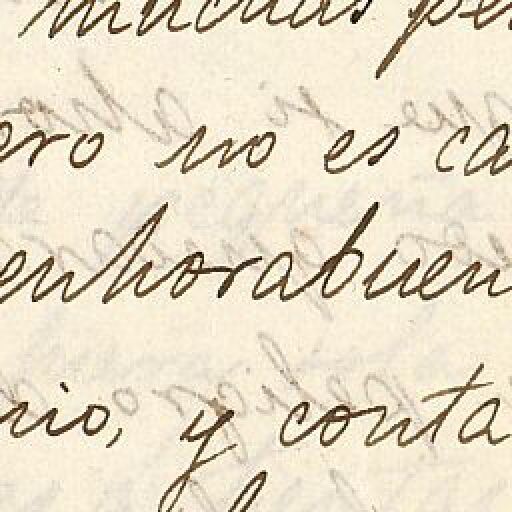 muchas pe
ero no es ca
enhorabuen
nio, y conta